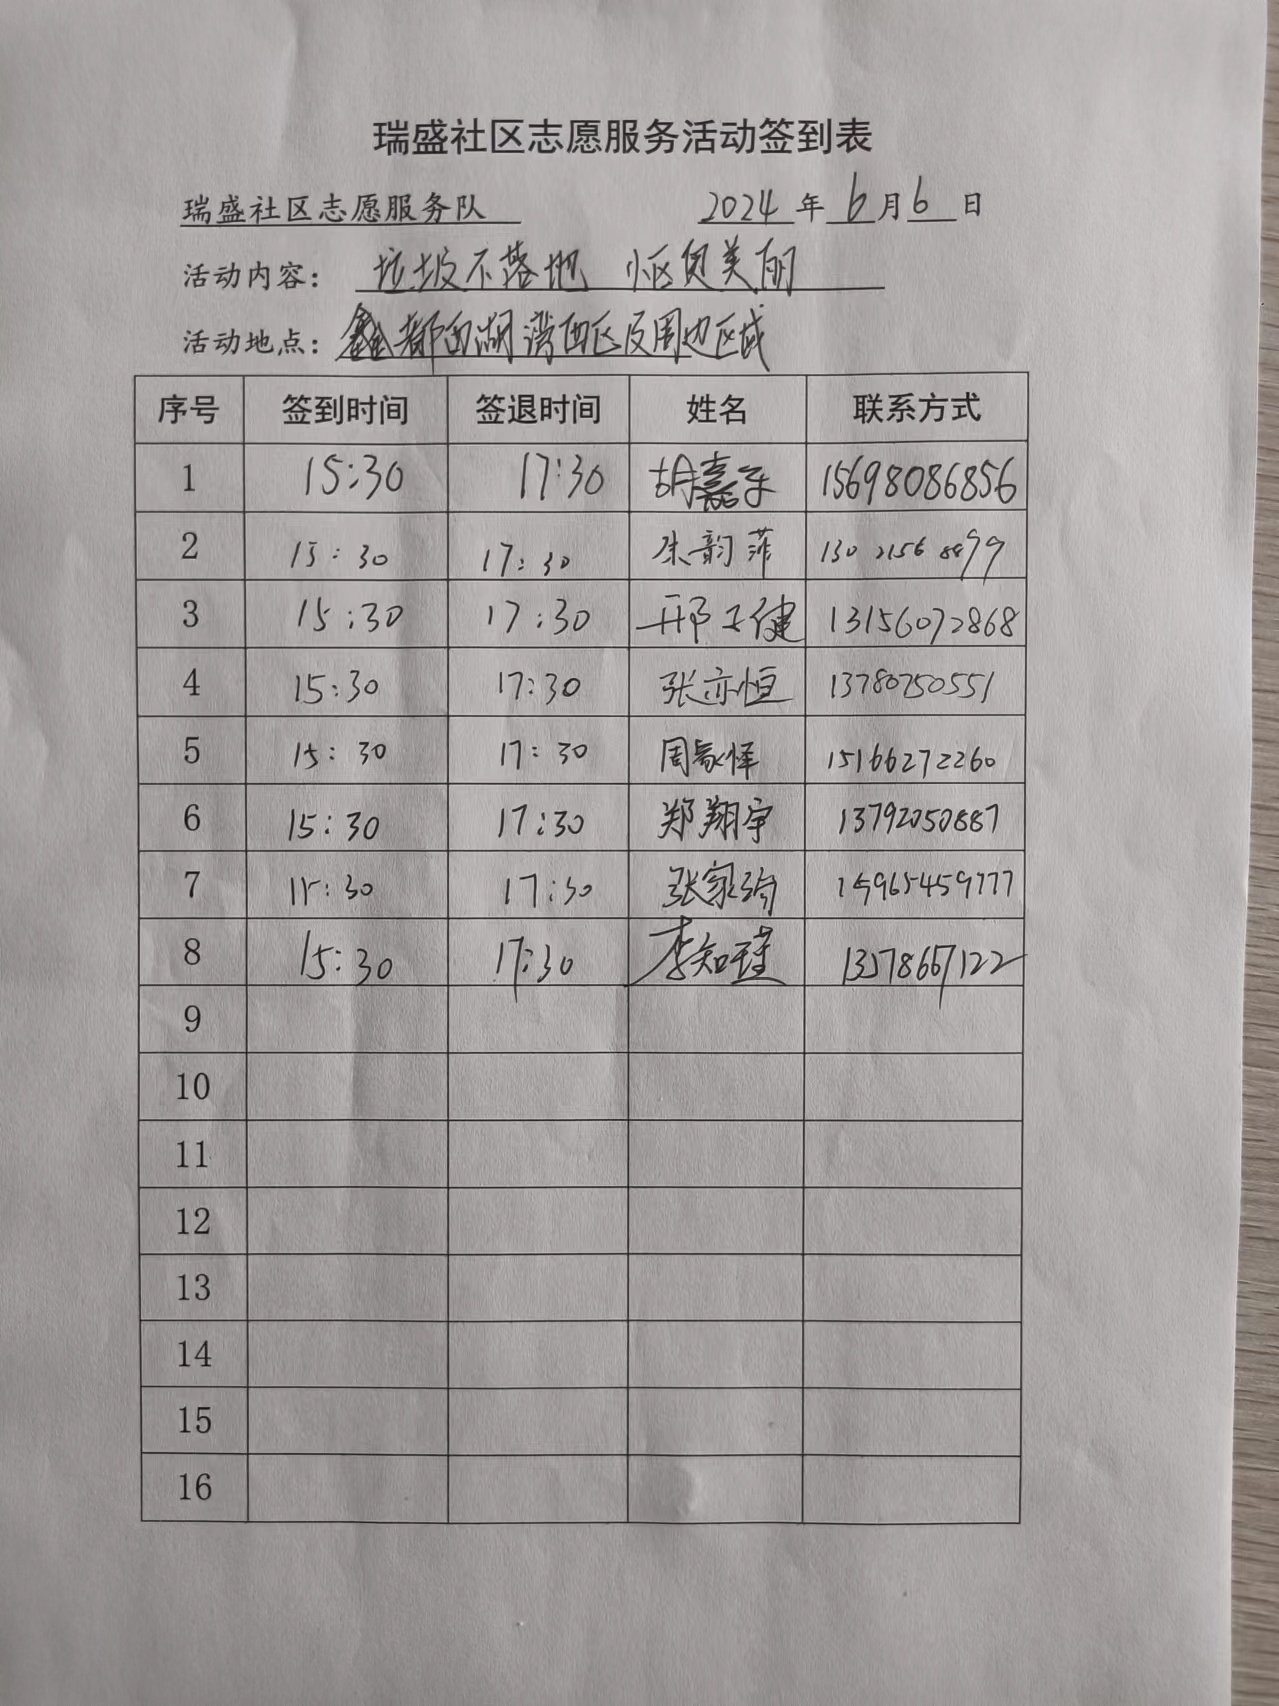 瑞盛社区志愿服务活动签到表
瑞盛社区志愿服务队 2024 年 6 月 6 日
活动内容： 垃圾不落地 美丽
活动地点： 鑫都西湖湾西区及周边区域
序号 签到时间 签退时间 姓名 联系方式
1 15:30 17:30 胡嘉 15698086856
2 15:30 17:30 朱韵菲 130 2156 8899
3 15:30 17:30 邢子健 13156072868
4 15:30 17:30 张亦恒 13780750551
5 15:30 17:30 周 怿 15166272260
6 15:30 17:30 郑翔宇 13792050887
7 15:30 17:30 张家 15965459777
8 15:30 17:30 李知瑾
9
10
11
12
13
14
15
16